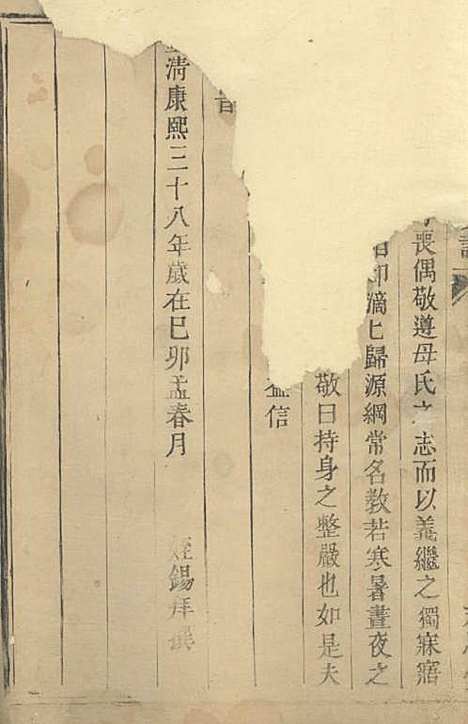 喪偶敬遵母氏之志而以義繼之獨寐寤
滴匕歸源綱常名教若寒暑晝夜之
敬曰持身之整嚴也如是夫
信
清康熙三十八年歲在巳卯孟春月 錫拜撰